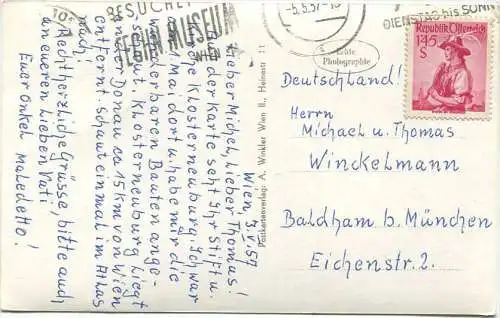 10
BESUCHET
UHREN MUSEUM
WIEN
-5.5.57-10
DIENSTAG bis SONN
Republik Österreich
1.45
S
Echte
Photographie
Wien, 3.V.57
Lieber Michel, lieber Thomas!
Auf der Karte seht Ihr Stift u.
Kirche Klosterneuburg. Ich war
am 1. Mai dort u. habe mir die
wunderbaren Bauten ange-
schaut. Klosterneuburg liegt
an der Donau ca 15 km von Wien
entfernt. Schaut einmal im Atlas
nach!
Recht herzliche Grüsse, bitte auch
an eueren lieben Vati
Euer Onkel Maledetto!
Postkartenverlag: A. Winkler Wien II., Heinestr. 11
Deutschland!
Herrn
Michael u. Thomas
Winckelmann
Baldham b. München
Eichenstr. 2.